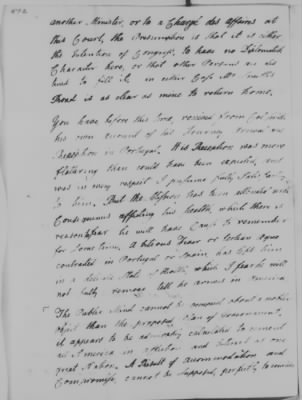 another Minister, or to a Chargé des Affaires at
this Court, the Presumption is that it is either
the Intention of Congress, to have no Diplomatic
Character here, or that other Persons are des
tined to fill it, in either Case Mr Smith's
Road is as clear as mine to return home.
You have before this time, received from Col
his own account of his Journey
Reception in Portugal. His Reception was more
flattering than could have been expected, and
was in every respect I presume satisfactory
to him. But the has been attended with
Consequences affecting his health, which there is
reason to fear he will have Cause to remember
for some time. A bilious Fever or tertian Ague
contracted in Portugal or Spain has left him
in a State of Health, which I fear he will
not fully remove till he arrives in America
The Public Mind cannot be occupied about a nobler
object than the proposed Plan of Government.
it appears to be admirably calculated to cement
all America in affection and interest as one
great Nation. A Result of accommodation and
Compromise, cannot be supposed, perfectly to coincide